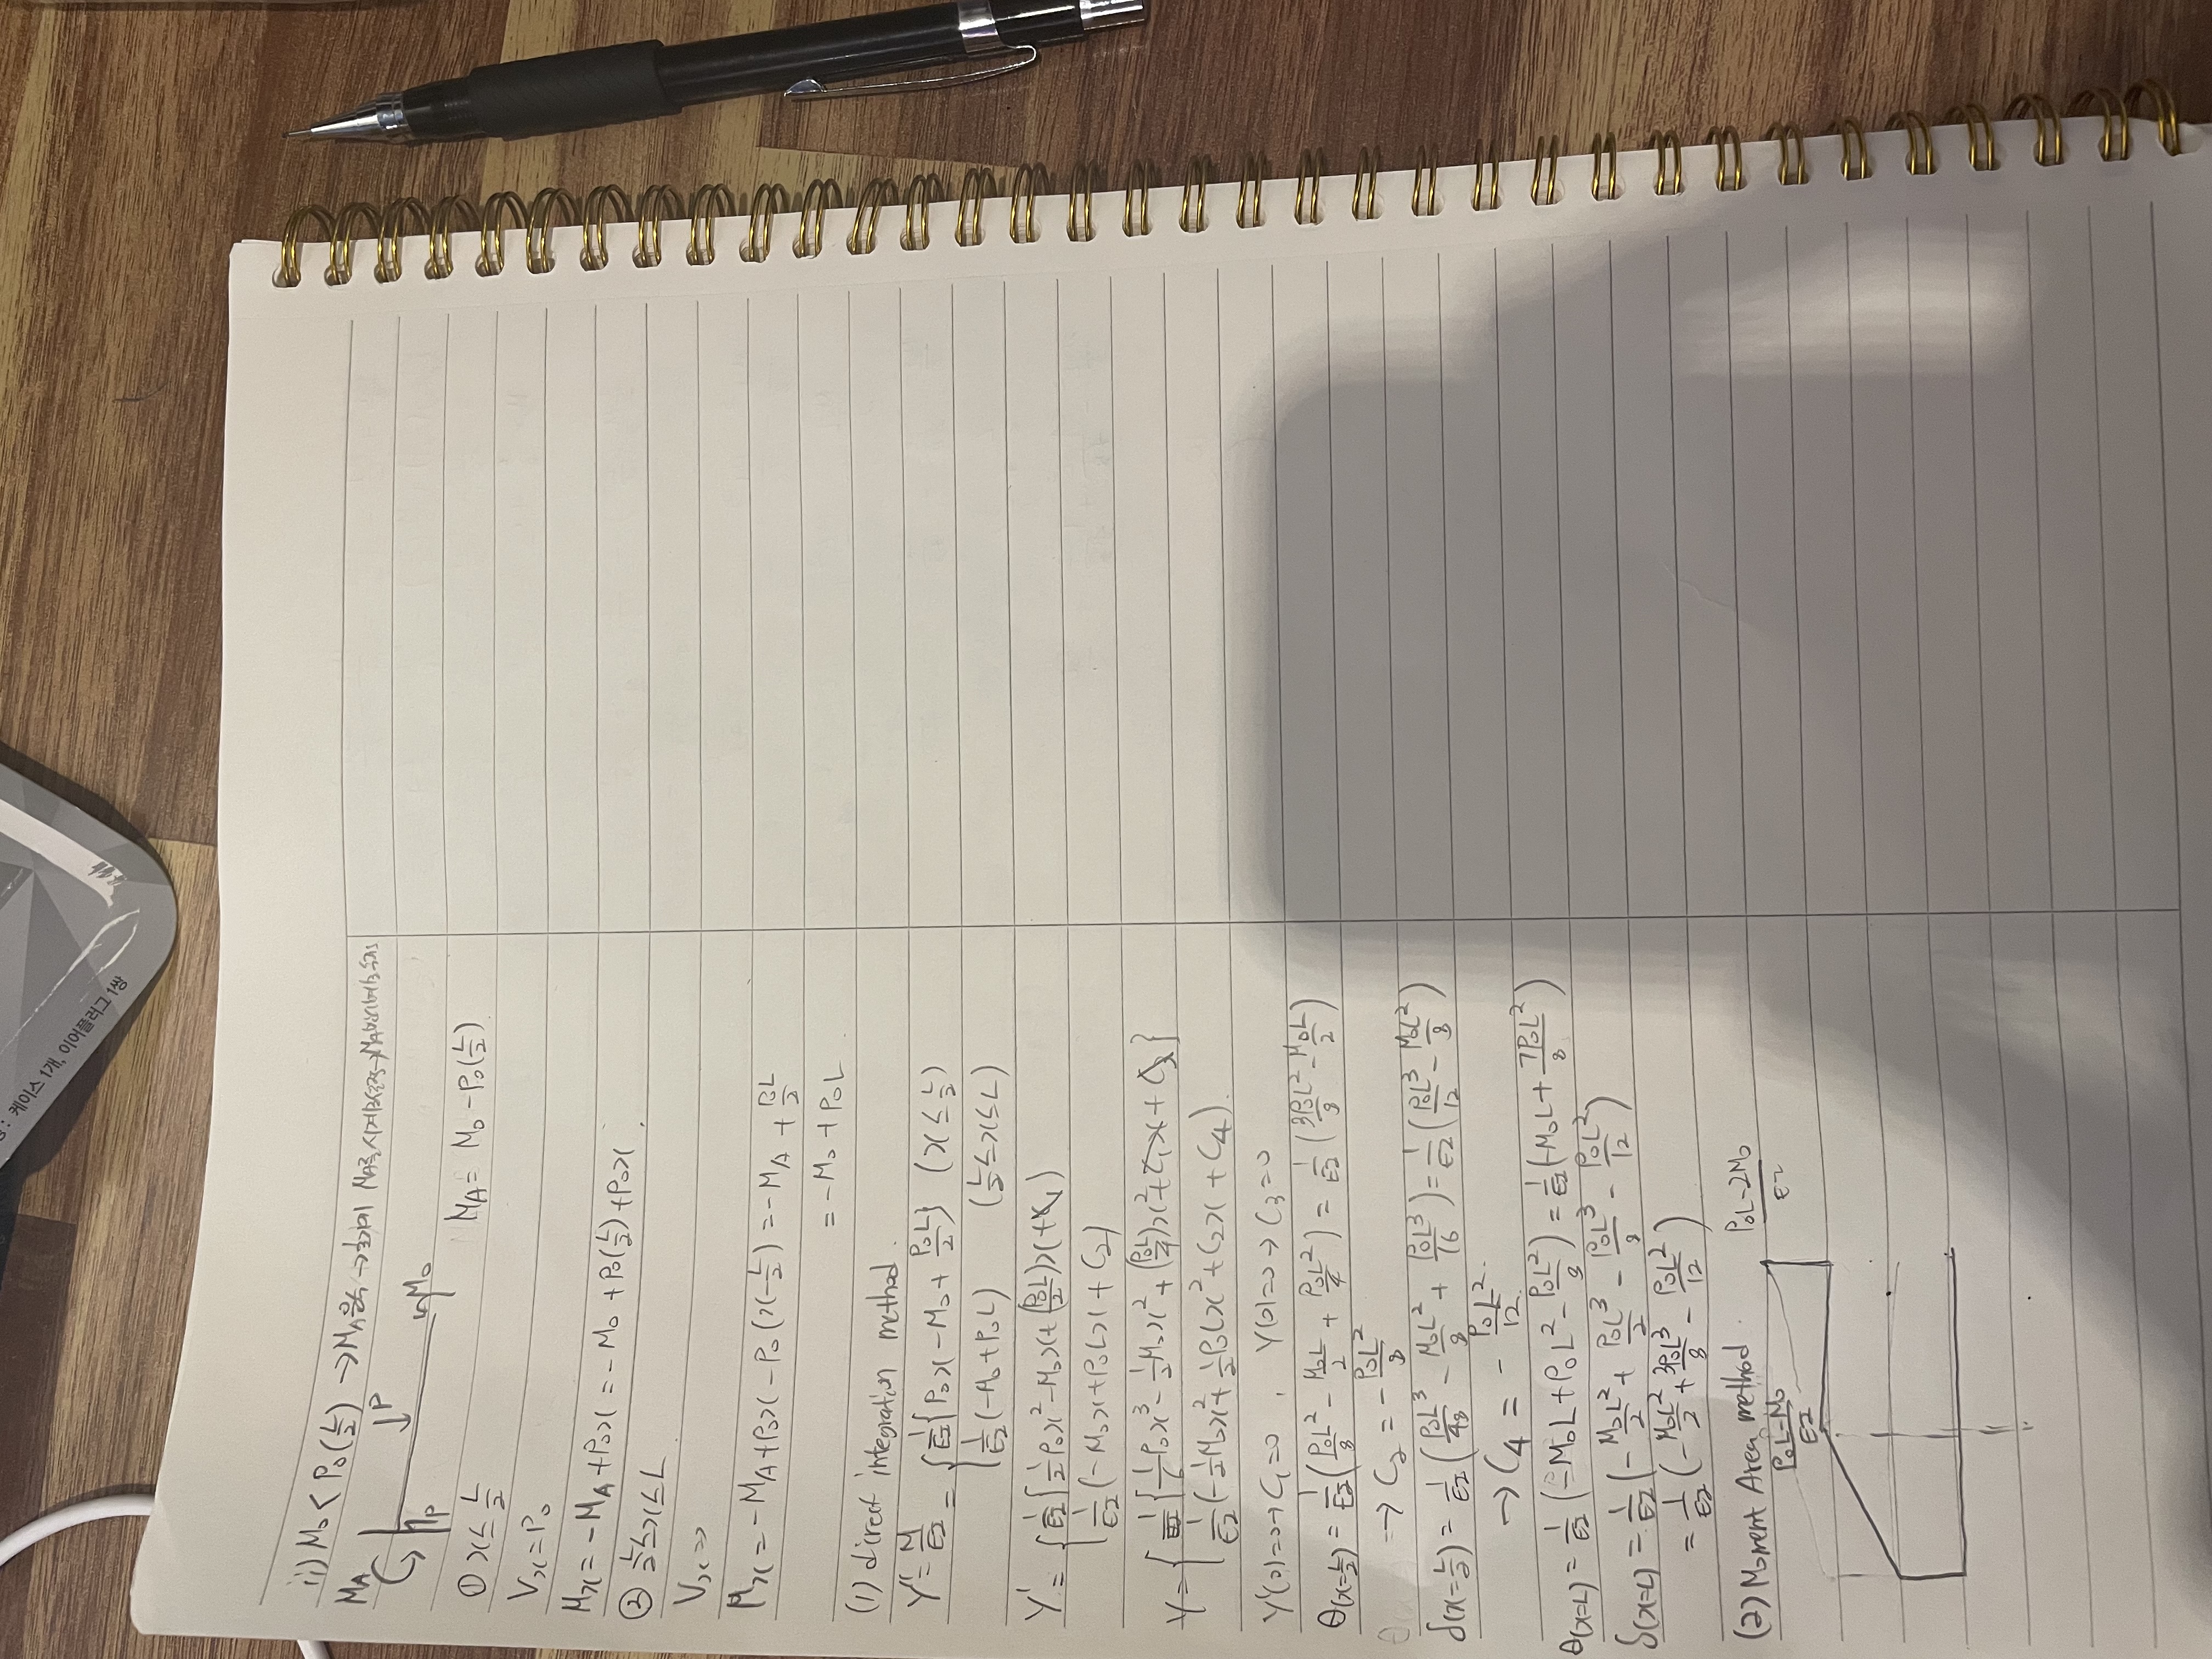 ii) M₀ < P₀(L/2)
MA
↓P
M₀
P
MA = M₀ - P₀(L/2)
① x ≤ L/2
Vx = P₀
Mx = -MA + P₀x = -M₀ + P₀(L/2) + P₀x.
② L/2 ≤ x ≤ L
Vx =
Mx = -MA + P₀x - P₀(x - L/2) = -MA + P₀L/2
= -M₀ + P₀L.
(1) direct integration method.
Y'' = M/EI = { 1/EI {P₀x - M₀ + P₀L/2} (x ≤ L/2)
1/EI (-M₀ + P₀L) (L/2 ≤ x ≤ L)
Y' = { 1/EI {1/2 P₀x² - M₀x + (P₀L/2)x (+C₁)
1/EI (-M₀x + P₀Lx + C₂)
Y = { 1/EI {1/6 P₀x³ - 1/2 M₀x² + (P₀L/4)x² + C₁x + C₃}
1/EI (-1/2 M₀x² + 1/2 P₀Lx² + C₂x + C₄).
Y'(0)=0 → C₁=0, Y(0)=0 → C₃=0
θ(x=L/2) = 1/EI (P₀L²/8 - M₀L/2 + P₀L²/4) = 1/EI (3P₀L²/8 - M₀L/2)
→ C₂ = - P₀L²/8
δ(x=L/2) = 1/EI (P₀L³/48 - M₀L²/8 + P₀L³/16) = 1/EI (P₀L³/12 - M₀L²/8)
→ C₄ = - P₀L²/12.
θ(x=L) = 1/EI (-M₀L + P₀L² - P₀L²/8) = 1/EI (-M₀L + 7P₀L²/8)
δ(x=L) = 1/EI (- M₀L²/2 + P₀L³/2 - P₀L³/8 - P₀L²/12)
= 1/EI (- M₀L²/2 + 3P₀L³/8 - P₀L²/12)
(2) Moment Area method.
P₀L-M₀/EI
P₀L-2M₀
케이스 1개, 이어플러그 1쌍